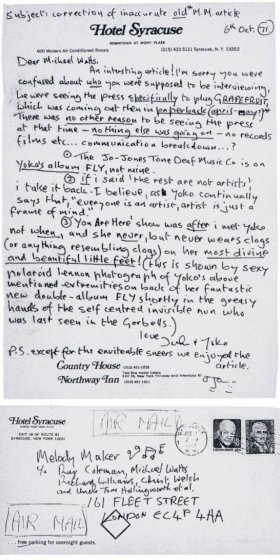 Subject: correction of inaccurate old M.M. article
Hotel Syracuse
6th Oct (71)
DOWNTOWN AT MONY PLAZA
600 Modern Air Conditioned Rooms
(315) 422-5121 Syracuse, N.Y. 13202
Dear Michael Watts,
An intersting article! I'm sorry you were
confused about who you were supposed to be interviewing,
we were seeing the press specifically to plug GRAPEFRUIT,
which was coming out then in paperback (april-may?)*
There was no other reason to be seeing the press
at that time – nothing else was going on – no records
films etc... communication breakdown...?
① The Jo-Jones Tone Deaf Music Co is on
Yoko's album FLY, not mine.
② If i said 'the rest are not artists',
i take it back. I believe, as Yoko continually
says that, "everyone is an artist, artist is just a
frame of mind."
③ You Are Here show was after i met Yoko
not when, and she never, but never wears clogs
(or anything resembling clogs) on her most divine
and beautiful little feet! (this is shown by sexy
polaroid Lennon photograph of Yoko's above
mentioned extremities on back of her fantastic
new double-album FLY shortly in the greasy
hands of the self centred invisible nun who
was last seen in the Gorbels.)
love John & Yoko
P.S. except for the inevitable sneers we enjoyed the
article.
Country House
Northway Inn
Hotel Syracuse
EXIT 36 OF ROUTE 81
SYRACUSE, NEW YORK 13201
AIR MAIL
Melody Maker
c/o Ray Coleman, Michael Watts
Richard Williams, Chris Welch
and Uncle Tom Hollingworth et al.
161 FLEET STREET
LONDON EC4P 4AA
AIR MAIL
free parking for overnight guests.